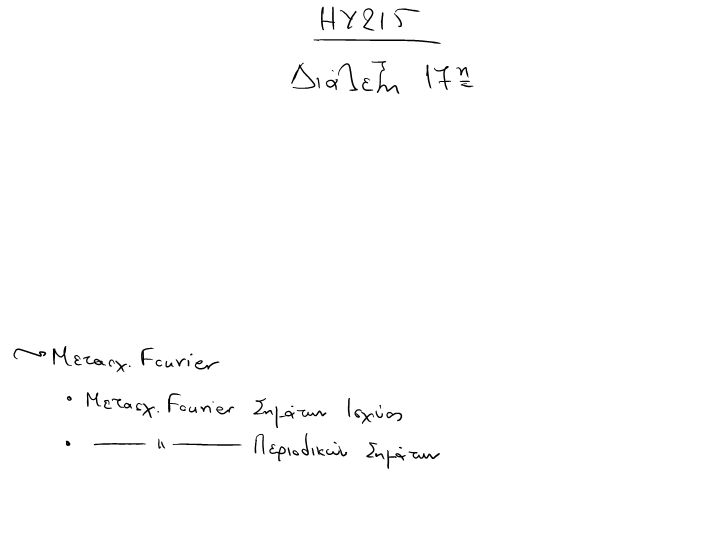 ΗΥ215
Διάλεξη 17η
Μετασχ. Fourier
• Μετασχ. Fourier Σημάτων Ισχύος
• —— " —— Περιοδικών Σημάτων